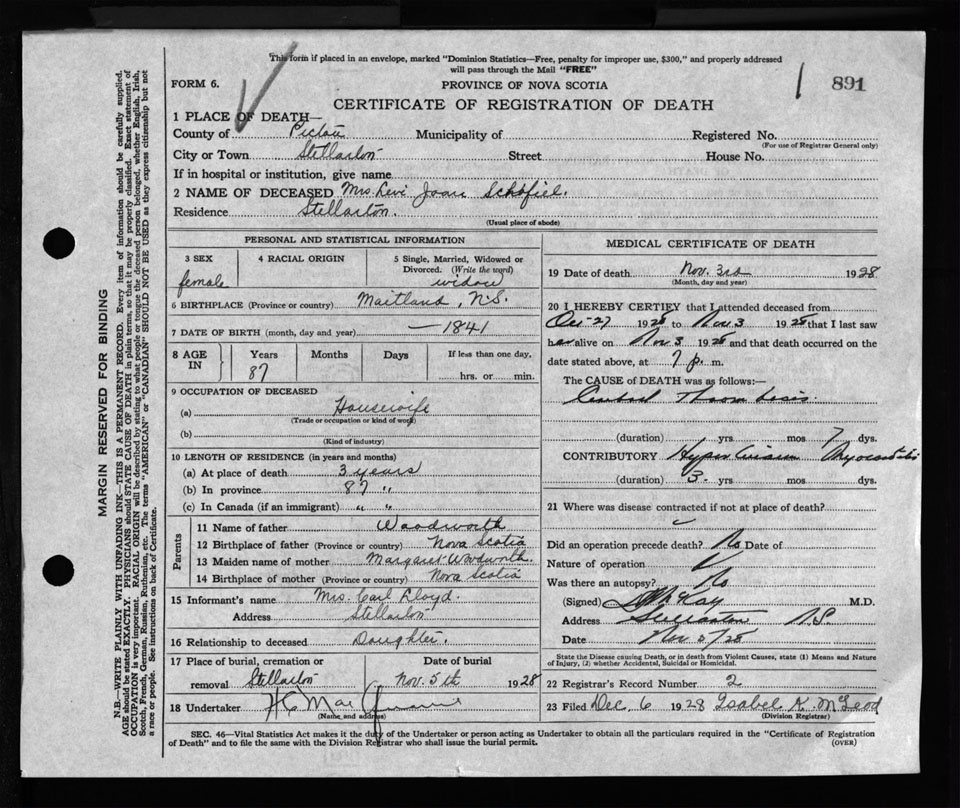 This form if placed in an envelope, marked "Dominion Statistics—Free, penalty for improper use, $300," and properly addressed
will pass through the Mail "FREE"
FORM 6.
PROVINCE OF NOVA SCOTIA
1 891
CERTIFICATE OF REGISTRATION OF DEATH
1 PLACE OF DEATH—
County of Pictou Municipality of Registered No.
(For use of Registrar General only)
City or Town Stellarton Street House No.
If in hospital or institution, give name
2 NAME OF DECEASED Mrs. Levi Joan Schofiel.
Residence Stellarton.
(Usual place of abode)
PERSONAL AND STATISTICAL INFORMATION
3 SEX 4 RACIAL ORIGIN 5 Single, Married, Widowed or
Divorced. (Write the word)
female widow
6 BIRTHPLACE (Province or country) Maitland, N.S.
7 DATE OF BIRTH (month, day and year) — 1841
8 AGE IN Years Months Days If less than one day,
87 hrs. or min.
9 OCCUPATION OF DECEASED
(a) Housewife
(Trade or occupation or kind of work)
(b)
(Kind of industry)
10 LENGTH OF RESIDENCE (in years and months)
(a) At place of death 3 years
(b) In province 87 "
(c) In Canada (if an immigrant) " "
Parents
11 Name of father Woodworth
12 Birthplace of father (Province or country) Nova Scotia
13 Maiden name of mother Margaret Wodworth
14 Birthplace of mother (Province or country) Nova Scotia
15 Informant's name Mrs. Carl Lloyd.
Address Stellarton
16 Relationship to deceased Daughter.
17 Place of burial, cremation or Date of burial
removal Stellarton Nov. 5th 1928
18 Undertaker H C Mac
(Name and address)
MEDICAL CERTIFICATE OF DEATH
19 Date of death Nov. 3rd 1928
(Month, day and year)
20 I HEREBY CERTIFY that I attended deceased from
Oct 27 1928 to Nov 3 1928 that I last saw
her alive on Nov 3 1928 and that death occurred on the
date stated above, at 7 p. m.
The CAUSE OF DEATH was as follows:—
Cerebral Thrombosis.
(duration) yrs. mos 7 dys.
CONTRIBUTORY Myocarditis
(duration) 3 yrs. mos. dys.
21 Where was disease contracted if not at place of death?
Did an operation precede death? No Date of
Nature of operation
Was there an autopsy? No
(Signed) McKay M.D.
Address Stellarton N.S.
Date Nov 5/28
State the Disease causing Death, or in death from Violent Causes, state (1) Means and Nature
of Injury, (2) whether Accidental, Suicidal or Homicidal.
22 Registrar's Record Number 2
23 Filed Dec. 6 1928 Isabel K. McLeod
(Division Registrar)
SEC. 46—Vital Statistics Act makes it the duty of the Undertaker or person acting as Undertaker to obtain all the particulars required in the "Certificate of Registration
of Death" and to file the same with the Division Registrar who shall issue the burial permit. (OVER)
MARGIN RESERVED FOR BINDING
N.B.—WRITE PLAINLY WITH UNFADING INK—THIS IS A PERMANENT RECORD. Every item of information should be carefully supplied.
AGE should be stated EXACTLY. PHYSICIANS should STATE CAUSE OF DEATH in plain terms, so that it may be properly classified. Exact statement of
OCCUPATION is very important. RACIAL ORIGIN will be described by stating to what people or tongue the deceased person belonged, whether English, Irish,
Scotch, French, German, Russian, Ruthenian, etc. The terms "AMERICAN" or "CANADIAN" SHOULD NOT BE USED as they express citizenship but not
a race or people. See instructions on back of Certificate.